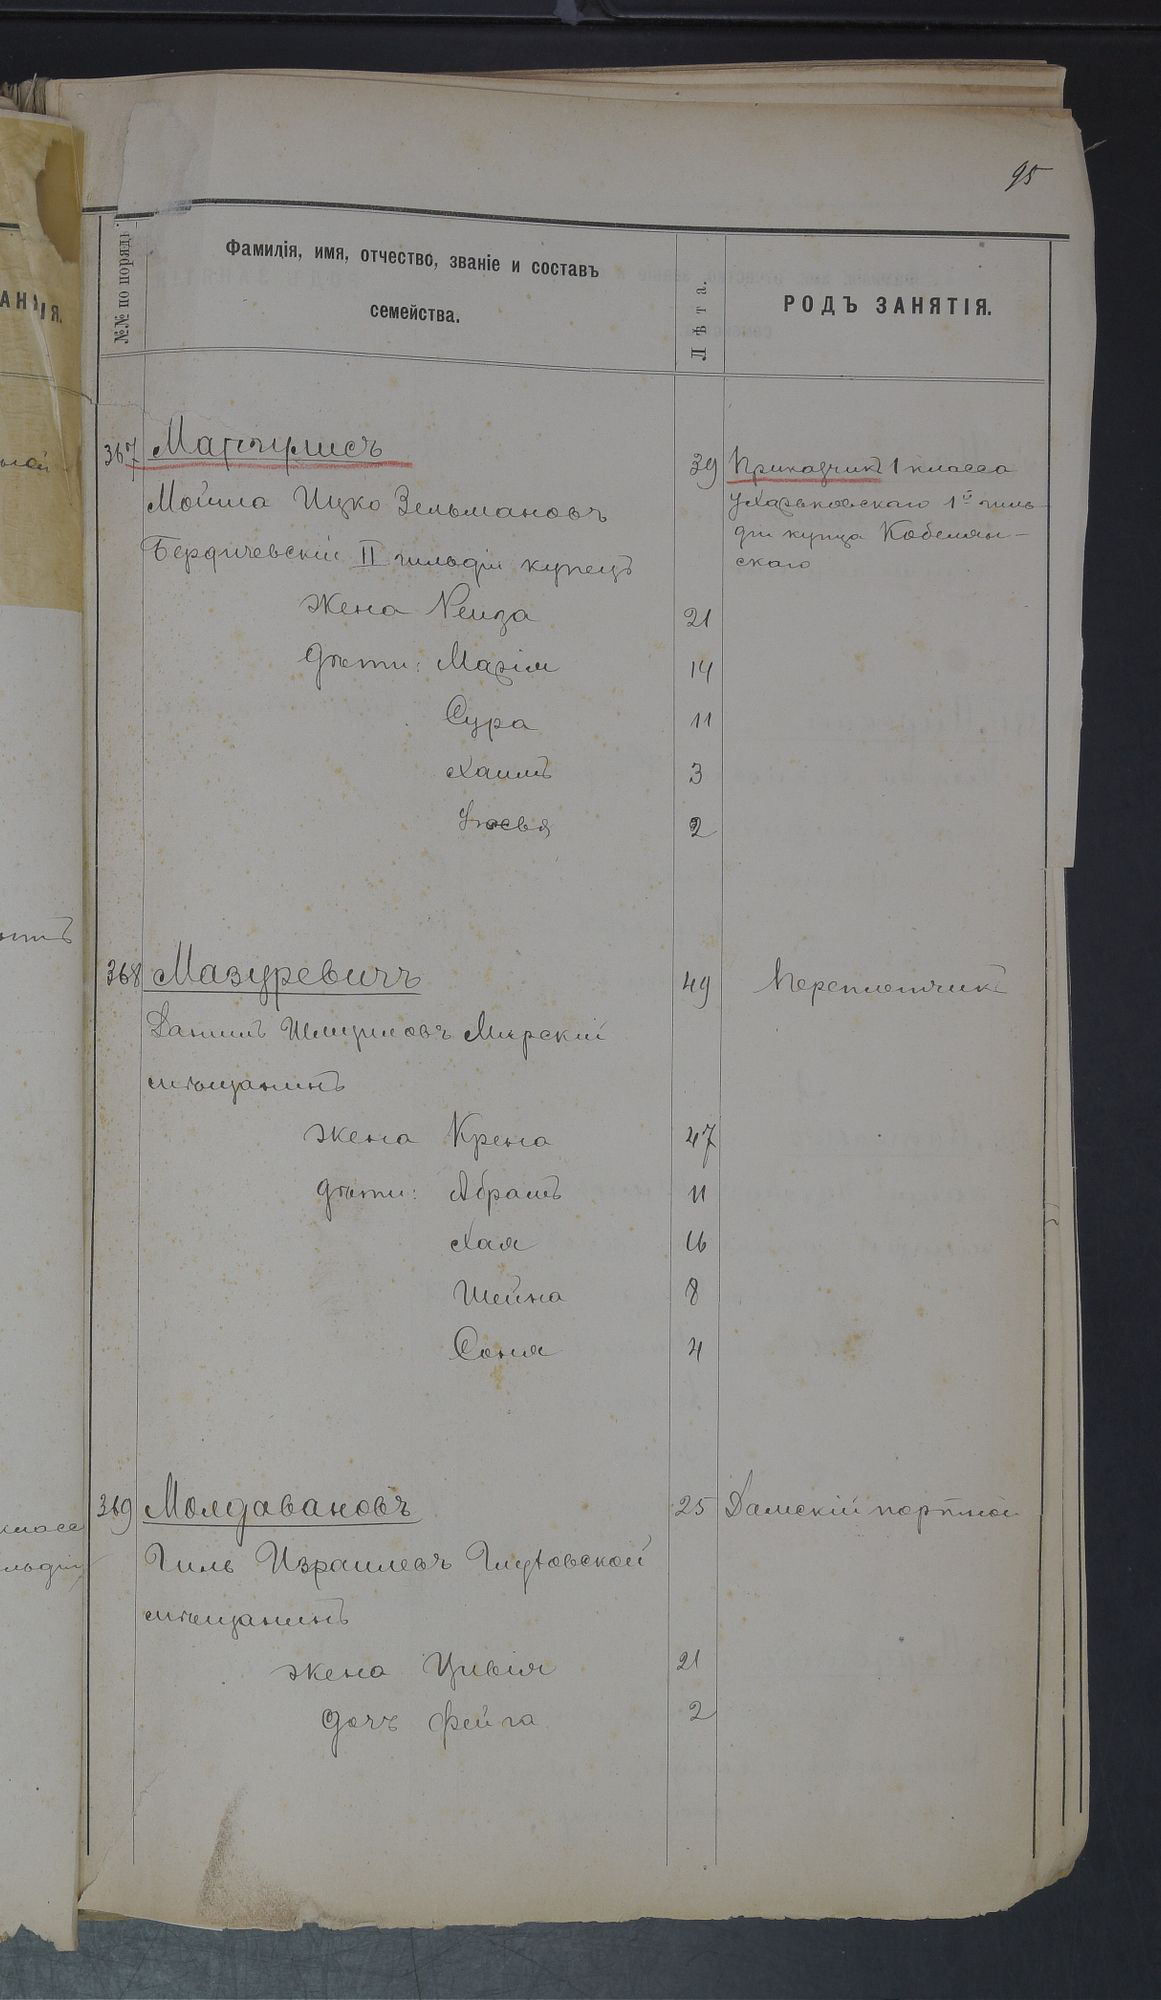 95
№№ по порядк.
Фамилія, имя, отчество, званіе и составъ
семейства.
Лѣта.
РОДЪ ЗАНЯТІЯ.
367 Маргулисъ 39 Приказчикъ 1 класса
Мойша Ицко Зельмановъ у Харьковскаго 1й гиль-
Бердичевскій II гильдіи купецъ діи купца Кобелян-
скаго
жена Реиза 21
дѣти: Махіи 14
Сура 11
Хаимъ 3
2
368 Мазуревичъ 49 Переплетчикъ
Данилъ Шмуиловъ Мирскій
мѣщанинъ
жена Крена 47
дѣти: Абрамъ 11
Хая 16
Шейна 8
Соня 4
369 Молдавановъ 25 Дамскій портной
Гиль Израилевъ Глуховской
мѣщанинъ
жена Цивія 21
дочъ Фейга 2